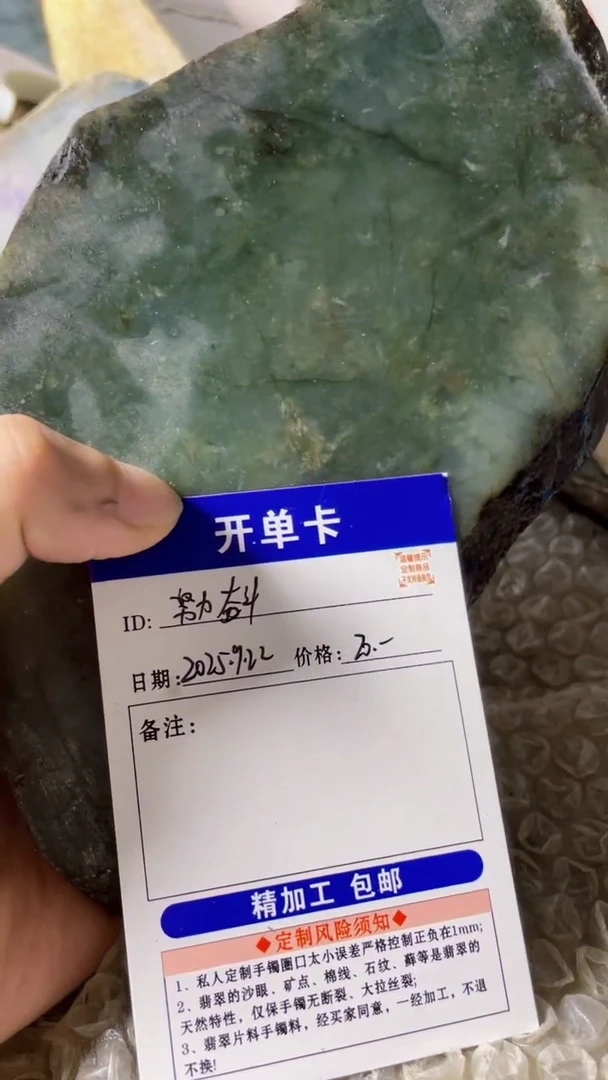 开单卡
温馨提示
定制商品
ID: 努力奋斗
日期: 2025.9.22 价格:
备注:
精加工 包邮
◆定制风险须知◆
1、私人定制手镯圈口大小误差严格控制正负在1mm;
2、翡翠的沙眼、矿点、棉线、石纹、藓等是翡翠的
天然特性，仅保手镯无断裂、大拉丝裂;
3、翡翠片料手镯料，经买家同意，一经加工，不退
不换!